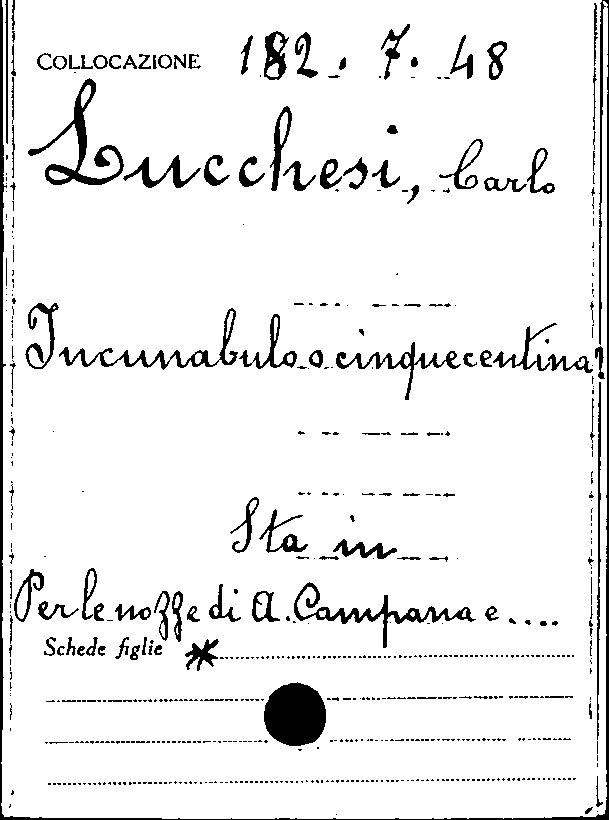 COLLOCAZIONE 182.7.48
Lucchesi, Carlo
Incunabulo o cinquecentina?
Sta in
Per le nozze di A. Campana e....
Schede figlie *